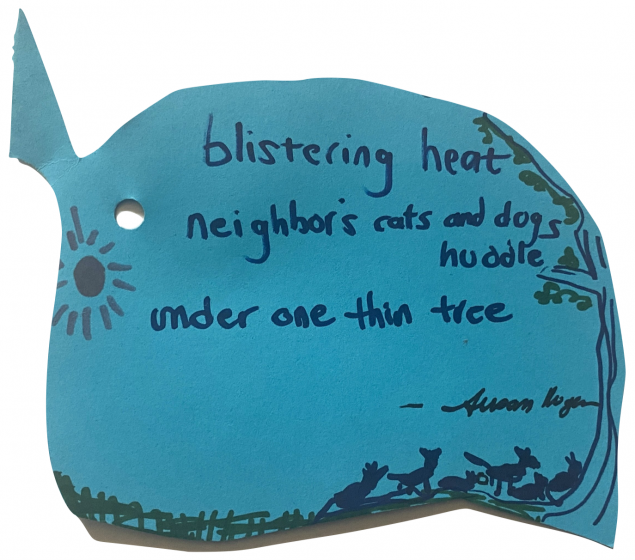 blistering heat
neighbor's cats and dogs
huddle
under one thin tree
— Susan